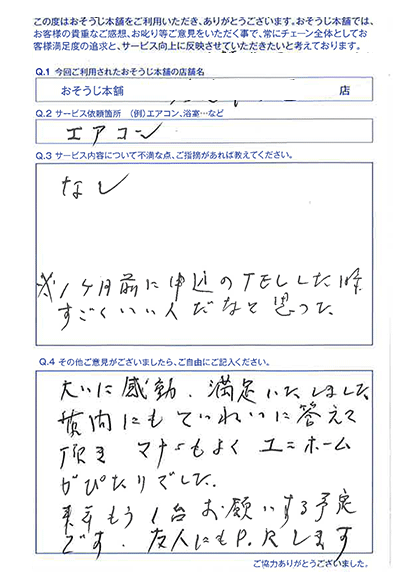 この度はおそうじ本舗をご利用いただき、ありがとうございます。おそうじ本舗では、
お客様の貴重なご感想、お叱り等ご意見をいただく事で、常にチェーン全体としてお
客様満足度の追求と、サービス向上に反映させていただきたいと考えております。
Q.1 今回ご利用されたおそうじ本舗の店舗名
おそうじ本舗 店
Q.2 サービス依頼箇所 (例)エアコン、浴室…など
エアコン
Q.3 サービス内容について不満な点、ご指摘があれば教えてください。
なし
※1ヶ月前に申込のTELした時
すごくいい人だなと思った
Q.4 その他ご意見がございましたら、ご自由にご記入ください。
大いに感動、満足いたしました
質問にもていねいに答えて
頂き マナーもよく ユニホーム
がぴたりでした。
来年もう1台お願いする予定
です。友人にもP.Rします
ご協力ありがとうございました。